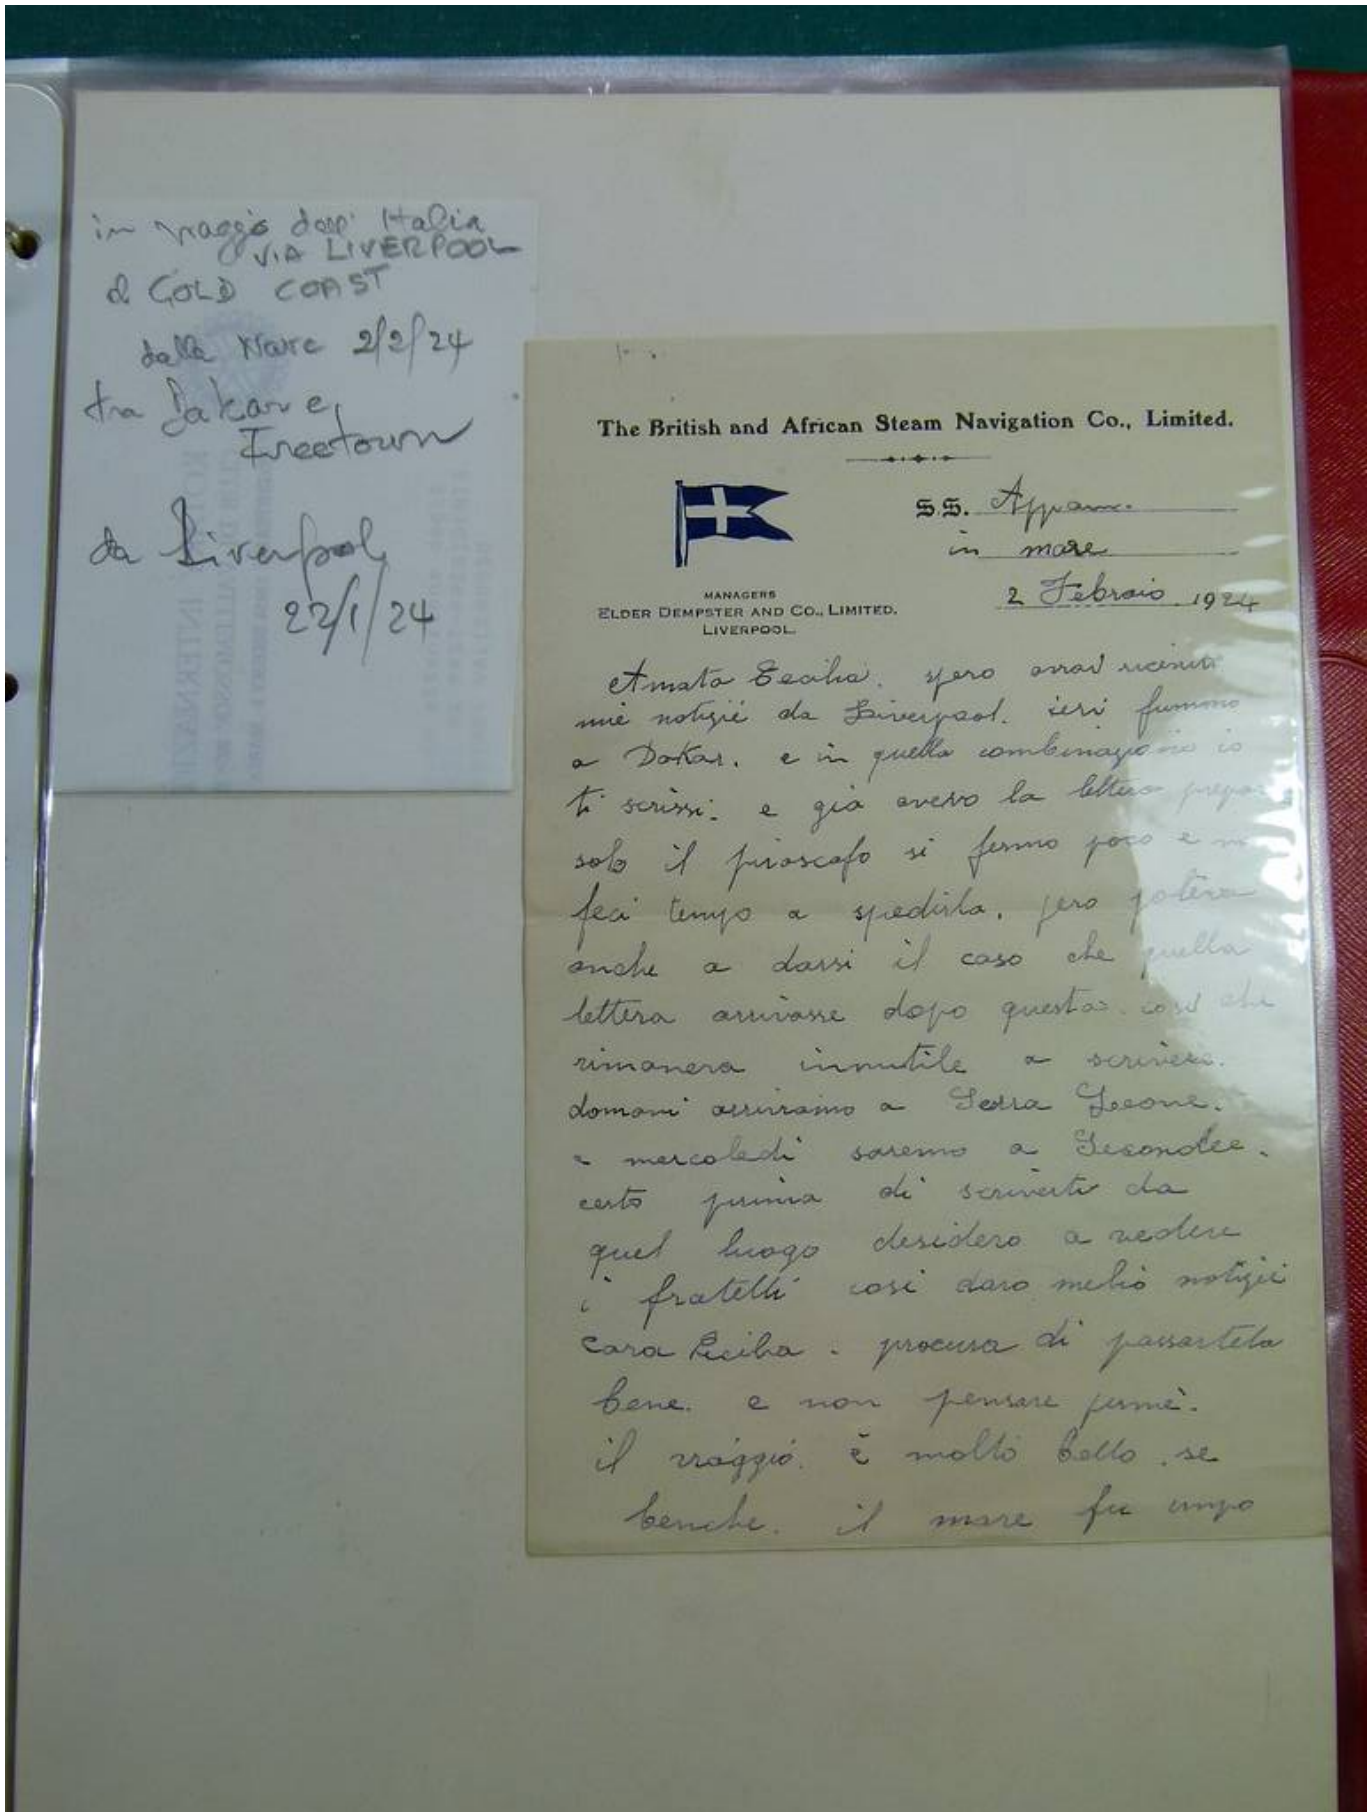 in viaggio dall' Italia
VIA LIVERPOOL
a GOLD COAST
dalla Nave 2/2/24
tra Dakar e
Freetown
da Liverpool
22/1/24
The British and African Steam Navigation Co., Limited.
S.S. Appam.
in mare
2 Febraio 1924
MANAGERS
ELDER DEMPSTER AND CO., LIMITED.
LIVERPOOL.
Amata Cecilia. spero avrai
mie notizie da Liverpool. ieri fummo
a Dakar. e in quella combinazione io
ti scrissi. e già avevo la lettera
solo il piroscafo si fermo poco e
feci tempo a spedirla. pero potera
anche a darsi il caso che quella
lettera arrivasse dopo questa. cosi che
rimanera innutile a scrivere.
domani arriviamo a Serra Leone.
e mercoledi saremo a Secondee.
certo prima di scriverti da
quel luogo desidero a vedere
i fratelli cosi daro melio notizie
Cara Cecilia. procura di passartela
bene. e non pensare permé.
il viaggio. è molto bello. se
benche. il mare fu unpo